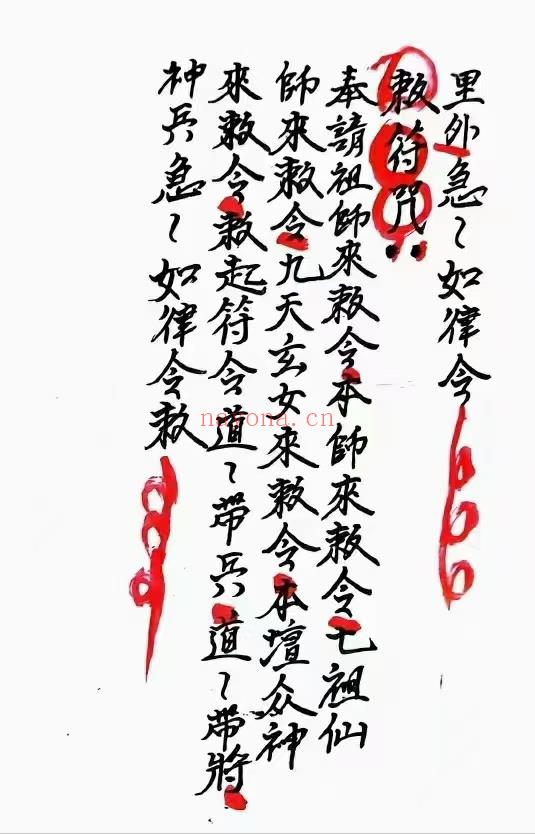 里外急〻如律令
敕符咒
奉請祖師來敕令本師來敕令七祖仙
師來敕令九天玄女來敕令本壇众神
來敕令敕起符令道〻带兵道〻带將
神兵急〻如律令敕
nayona.cn